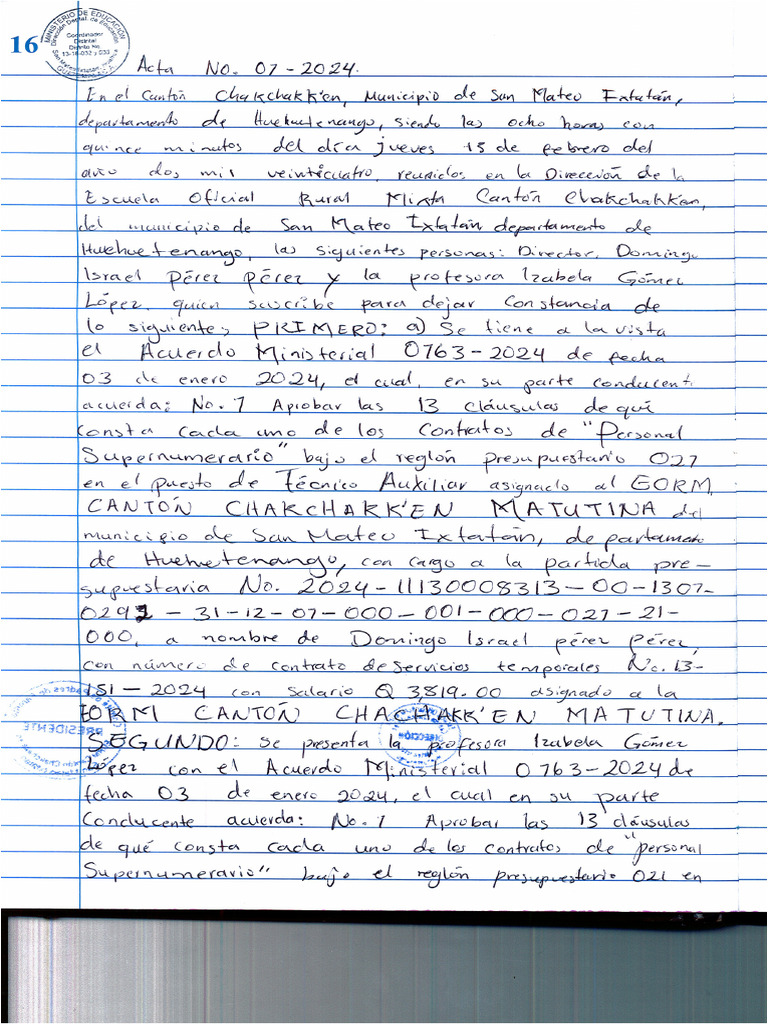 16
MINISTERIO DE EDUCACIÓN
Coordinador
Distrital
Distrito No.
Acta No. 07-2024.
En el Cantón Chakchakk'en, Municipio de San Mateo Ixtatán,
departamento de Huehuetenango, siendo las ocho horas con
quince minutos del día jueves 15 de febrero del
año dos mil veinticuatro, reunidos en la Dirección de la
Escuela Oficial Rural Mixta Cantón Chakchakken,
del municipio de San Mateo Ixtatán departamento de
Huehuetenango, las siguientes personas: Director, Domingo
Israel Pérez Pérez y la profesora Izabela Gómez
López, quien suscribe para dejar Constancia de
lo siguiente, PRIMERO: a) Se tiene a la vista
el Acuerdo Ministerial 0763-2024 de fecha
03 de enero 2024, el cual, en su parte conducent
acuerda: No. 1 Aprobar las 13 cláusulas de qué
consta cada uno de los Contratos de "Personal
Supernumerario" bajo el reglón presupuestario 021
en el puesto de Técnico Auxiliar asignado al EORM,
CANTÓN CHAKCHAKK'EN MATUTINA del
municipio de San Mateo Ixtatán, departamento
de Huehuetenango, con cargo a la partida pre-
supuestaria No. 2024-11130008313-00-1307-
0292 - 31-12-07-000-001-000-021-21-
000, a nombre de Domingo Israel pérez Pérez,
con número de contrato de servicios temporales No. 13-
151-2024 con salario Q 3,819.00 asignado a la
EORM CANTÓN CHACHAKK'EN MATUTINA.
PRESIDENTE
DIRECCIÓN
SEGUNDO: se presenta la profesora Izabela Gómez
López con el Acuerdo Ministerial 0763-2024 de
fecha 03 de enero 2024, el cual en su parte
Conducente acuerda: No. 1 Aprobar las 13 cláusulas
de qué consta cada uno de los contratos de "personal
Supernumerario" bajo el reglón presupuestario 021 en